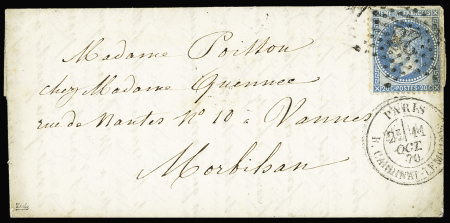 Madame Poitton
chez Madame Quennec
rue de Nantes Nº 10 à Vannes
Morbihan
PARIS
OCT
70
R. CARDINAL-LEMOINE
20 C POSTES 20 C